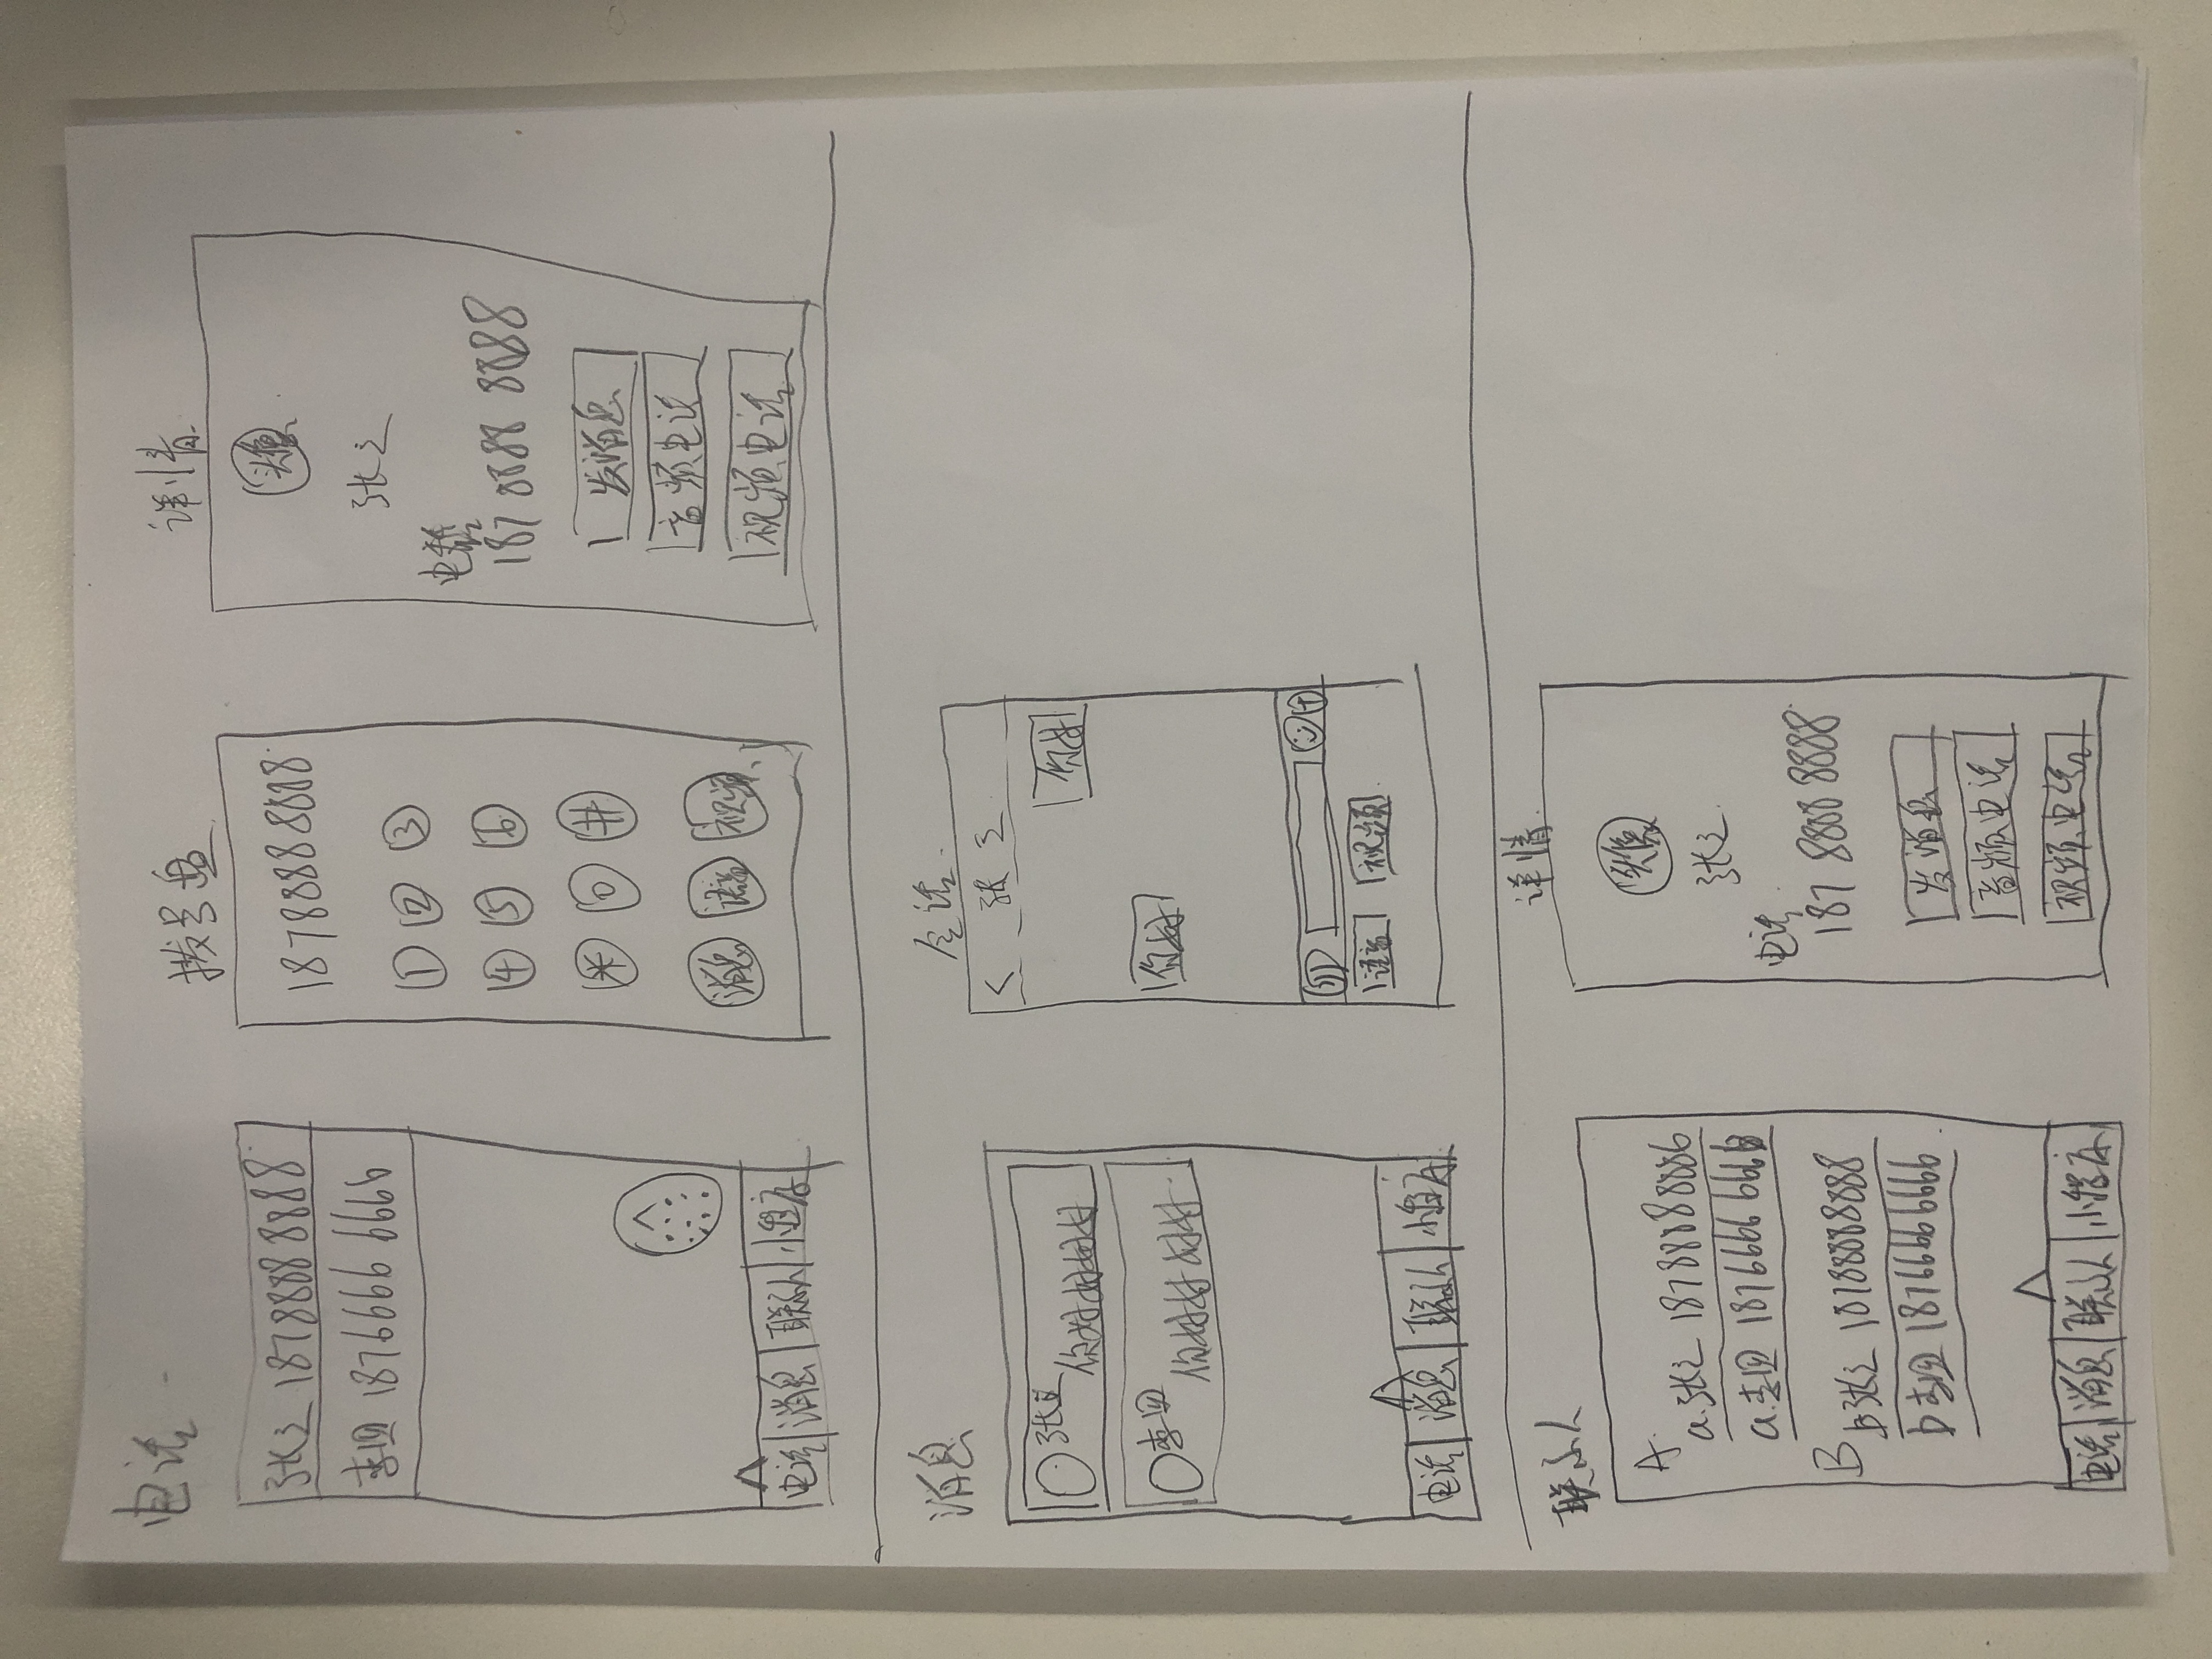 电话
张三 18788888888
李四 18766666666
电话 消息 联系人 小程序
拨号盘
18788888888
1 2 3
4 5 6
* 0 #
消息 语音 视频
详情
头像
张三
电话
187 8888 8888
发消息
音频电话
视频电话
消息
张三
你好好好好
李四
你好好好好
电话 消息 联系人 小程序
会话
< 张三
你好
你好
语音 视频
联系人
A
a.张三 18788888886
a.李四 18766666666
B
b张三 18788888888
b李四 18766666666
电话 消息 联系人 小程序
详情
头像
张三
电话
187 8888 8888
发消息
音频电话
视频电话